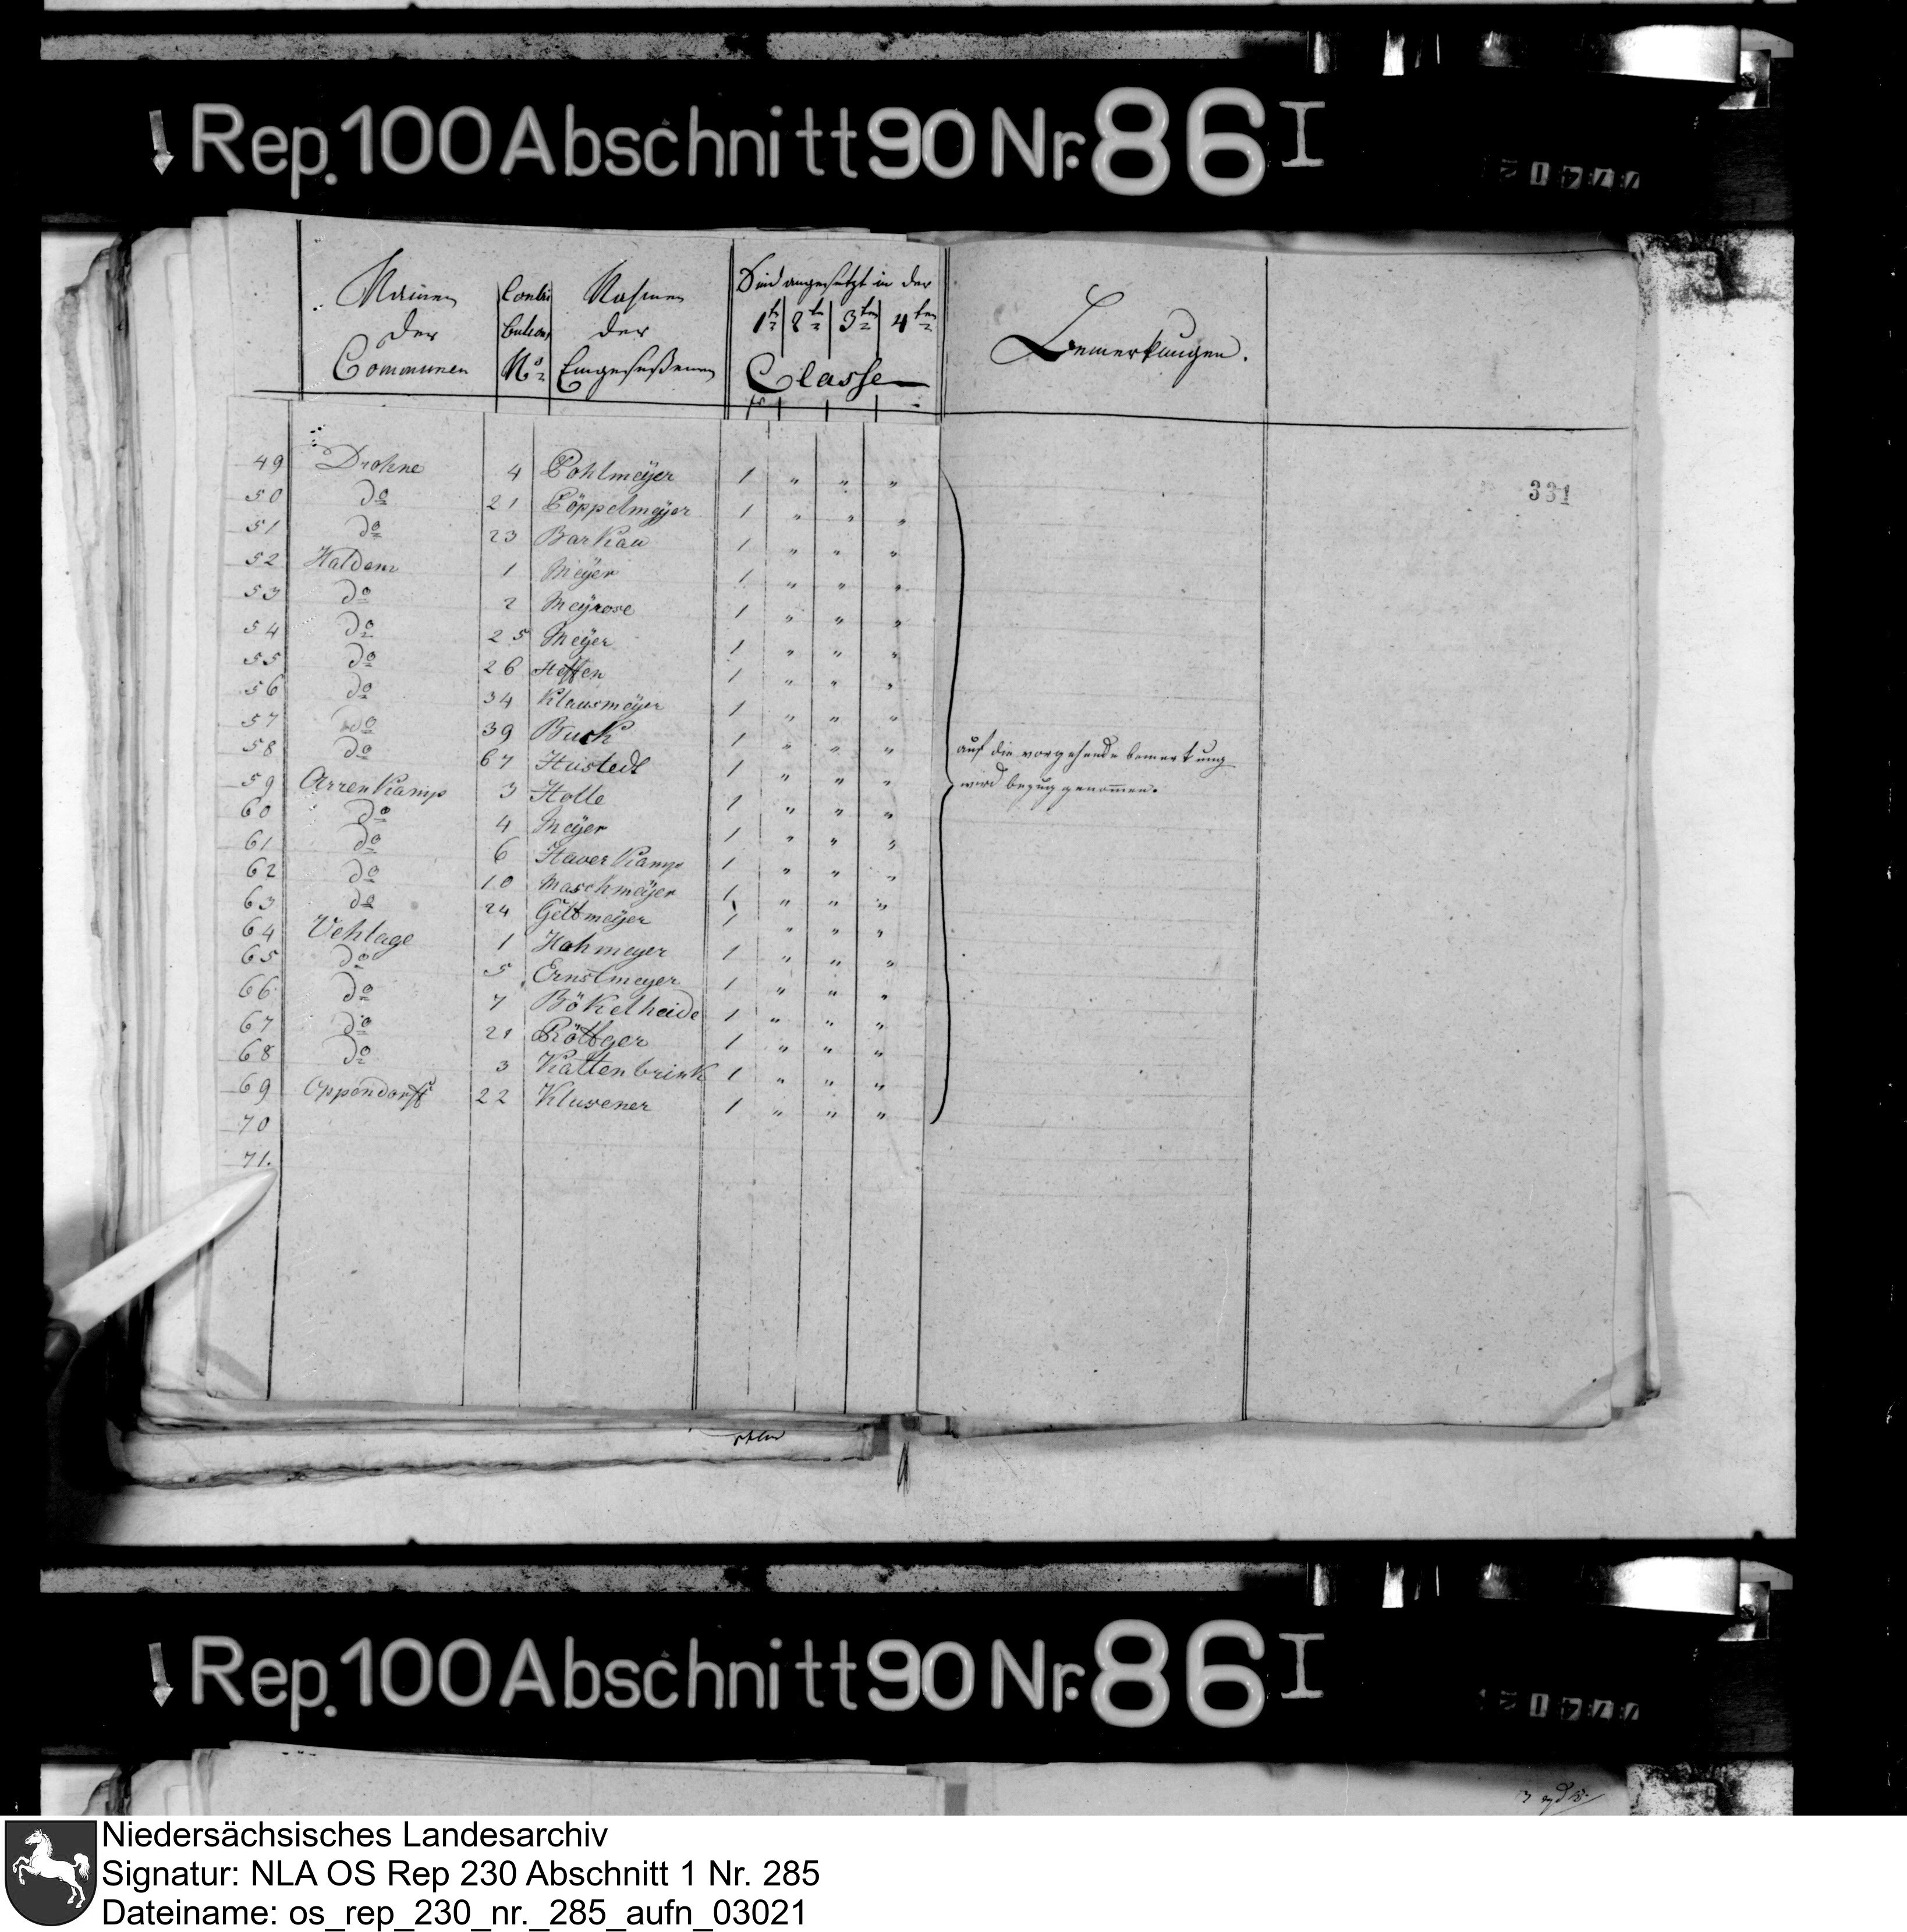 Rep. 100 Abschnitt 90 Nr. 86 I
Namen der Communen
Contri butions No
Nahmen der Eingeseßenen
Sind angesetzt in der
1te 2te 3ten 4ten
Classe
Bemerkungen.
331
49 Drohne 4 Pohlmeÿer 1 " " "
50 do 21 Pöppelmeÿer 1 " " "
51 do 23 Barkau 1 " " "
52 Haldem 1 Meÿer 1 " " "
53 do 2 Meÿrose 1 " " "
54 do 25 Meÿer 1 " " "
55 do 26 Steffen 1 " " "
56 do 34 Klausmeÿer 1 " " "
57 do 39 Buck 1 " " "
58 do 67 Hustedt 1 " " "
59 Arrenkamp 3 Holle 1 " " "
60 do 4 Meÿer 1 " " "
61 do 6 Haverkamp 1 " " "
62 do 10 Maschmeÿer 1 " " "
63 do 24 Geltmeÿer 1 " " "
64 Vehlage 1 Hohmeyer 1 " " "
65 do 5 Ernstmeyer 1 " " "
66 do 7 Bökelheide 1 " " "
67 do 21 Röttger 1 " " "
68 do 3 Kattenbrink 1 " " "
69 Oppendorff 22 Klusener 1 " " "
70
71.
auf die vorgehende bemerkung
wird bezug genommen.
Rep. 100 Abschnitt 90 Nr. 86 I
Niedersächsisches Landesarchiv
Signatur: NLA OS Rep 230 Abschnitt 1 Nr. 285
Dateiname: os_rep_230_nr._285_aufn_03021